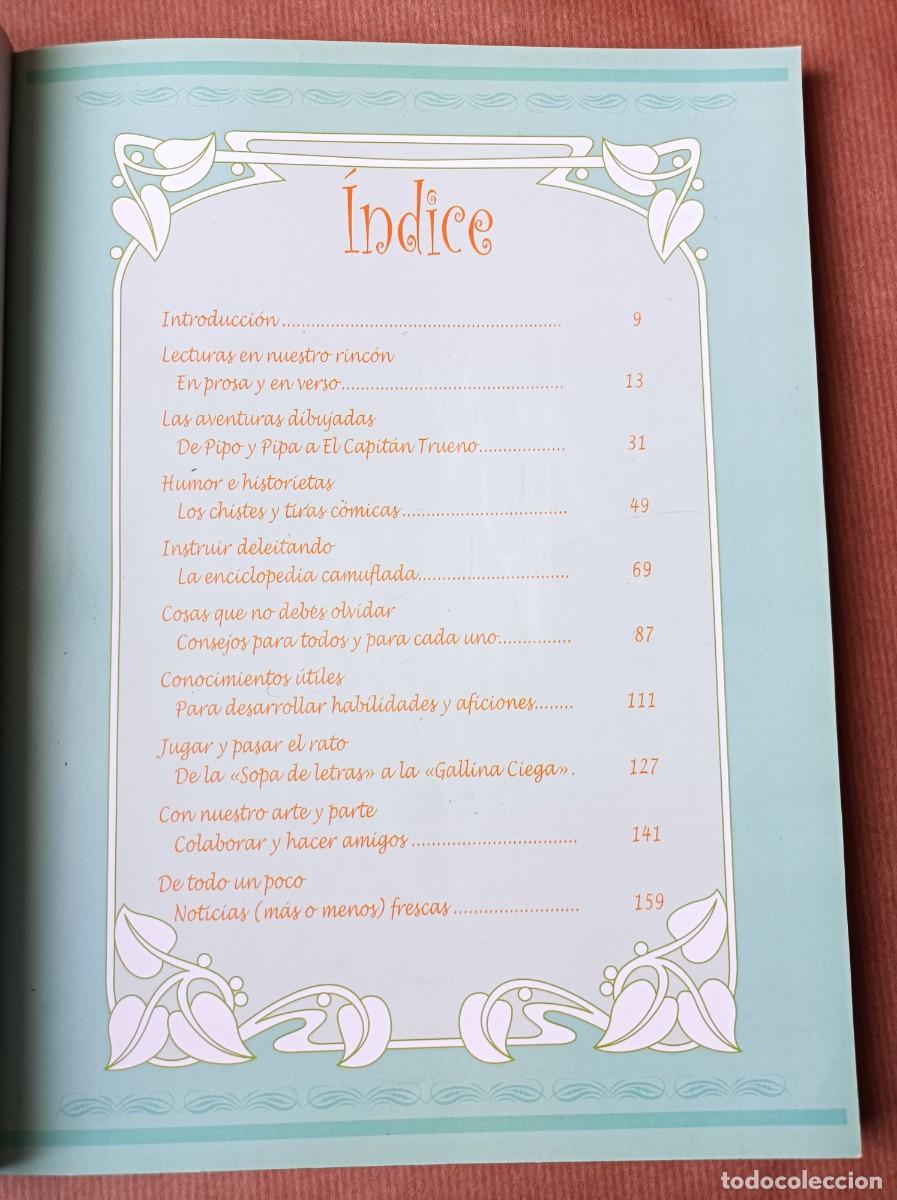 Índice
Introducción........................................................ 9
Lecturas en nuestro rincón
En prosa y en verso............................................. 13
Las aventuras dibujadas
De Pipo y Pipa a El Capitán Trueno.................. 31
Humor e historietas
Los chistes y tiras cómicas.................................. 49
Instruir deleitando
La enciclopedia camuflada............................... 69
Cosas que no debés olvidar
Consejos para todos y para cada uno............... 87
Conocimientos útiles
Para desarrollar habilidades y aficiones........ 111
Jugar y pasar el rato
De la «Sopa de letras» a la «Gallina Ciega». 127
Con nuestro arte y parte
Colaborar y hacer amigos.................................. 141
De todo un poco
Noticias (más o menos) frescas.......................... 159
todocoleccion